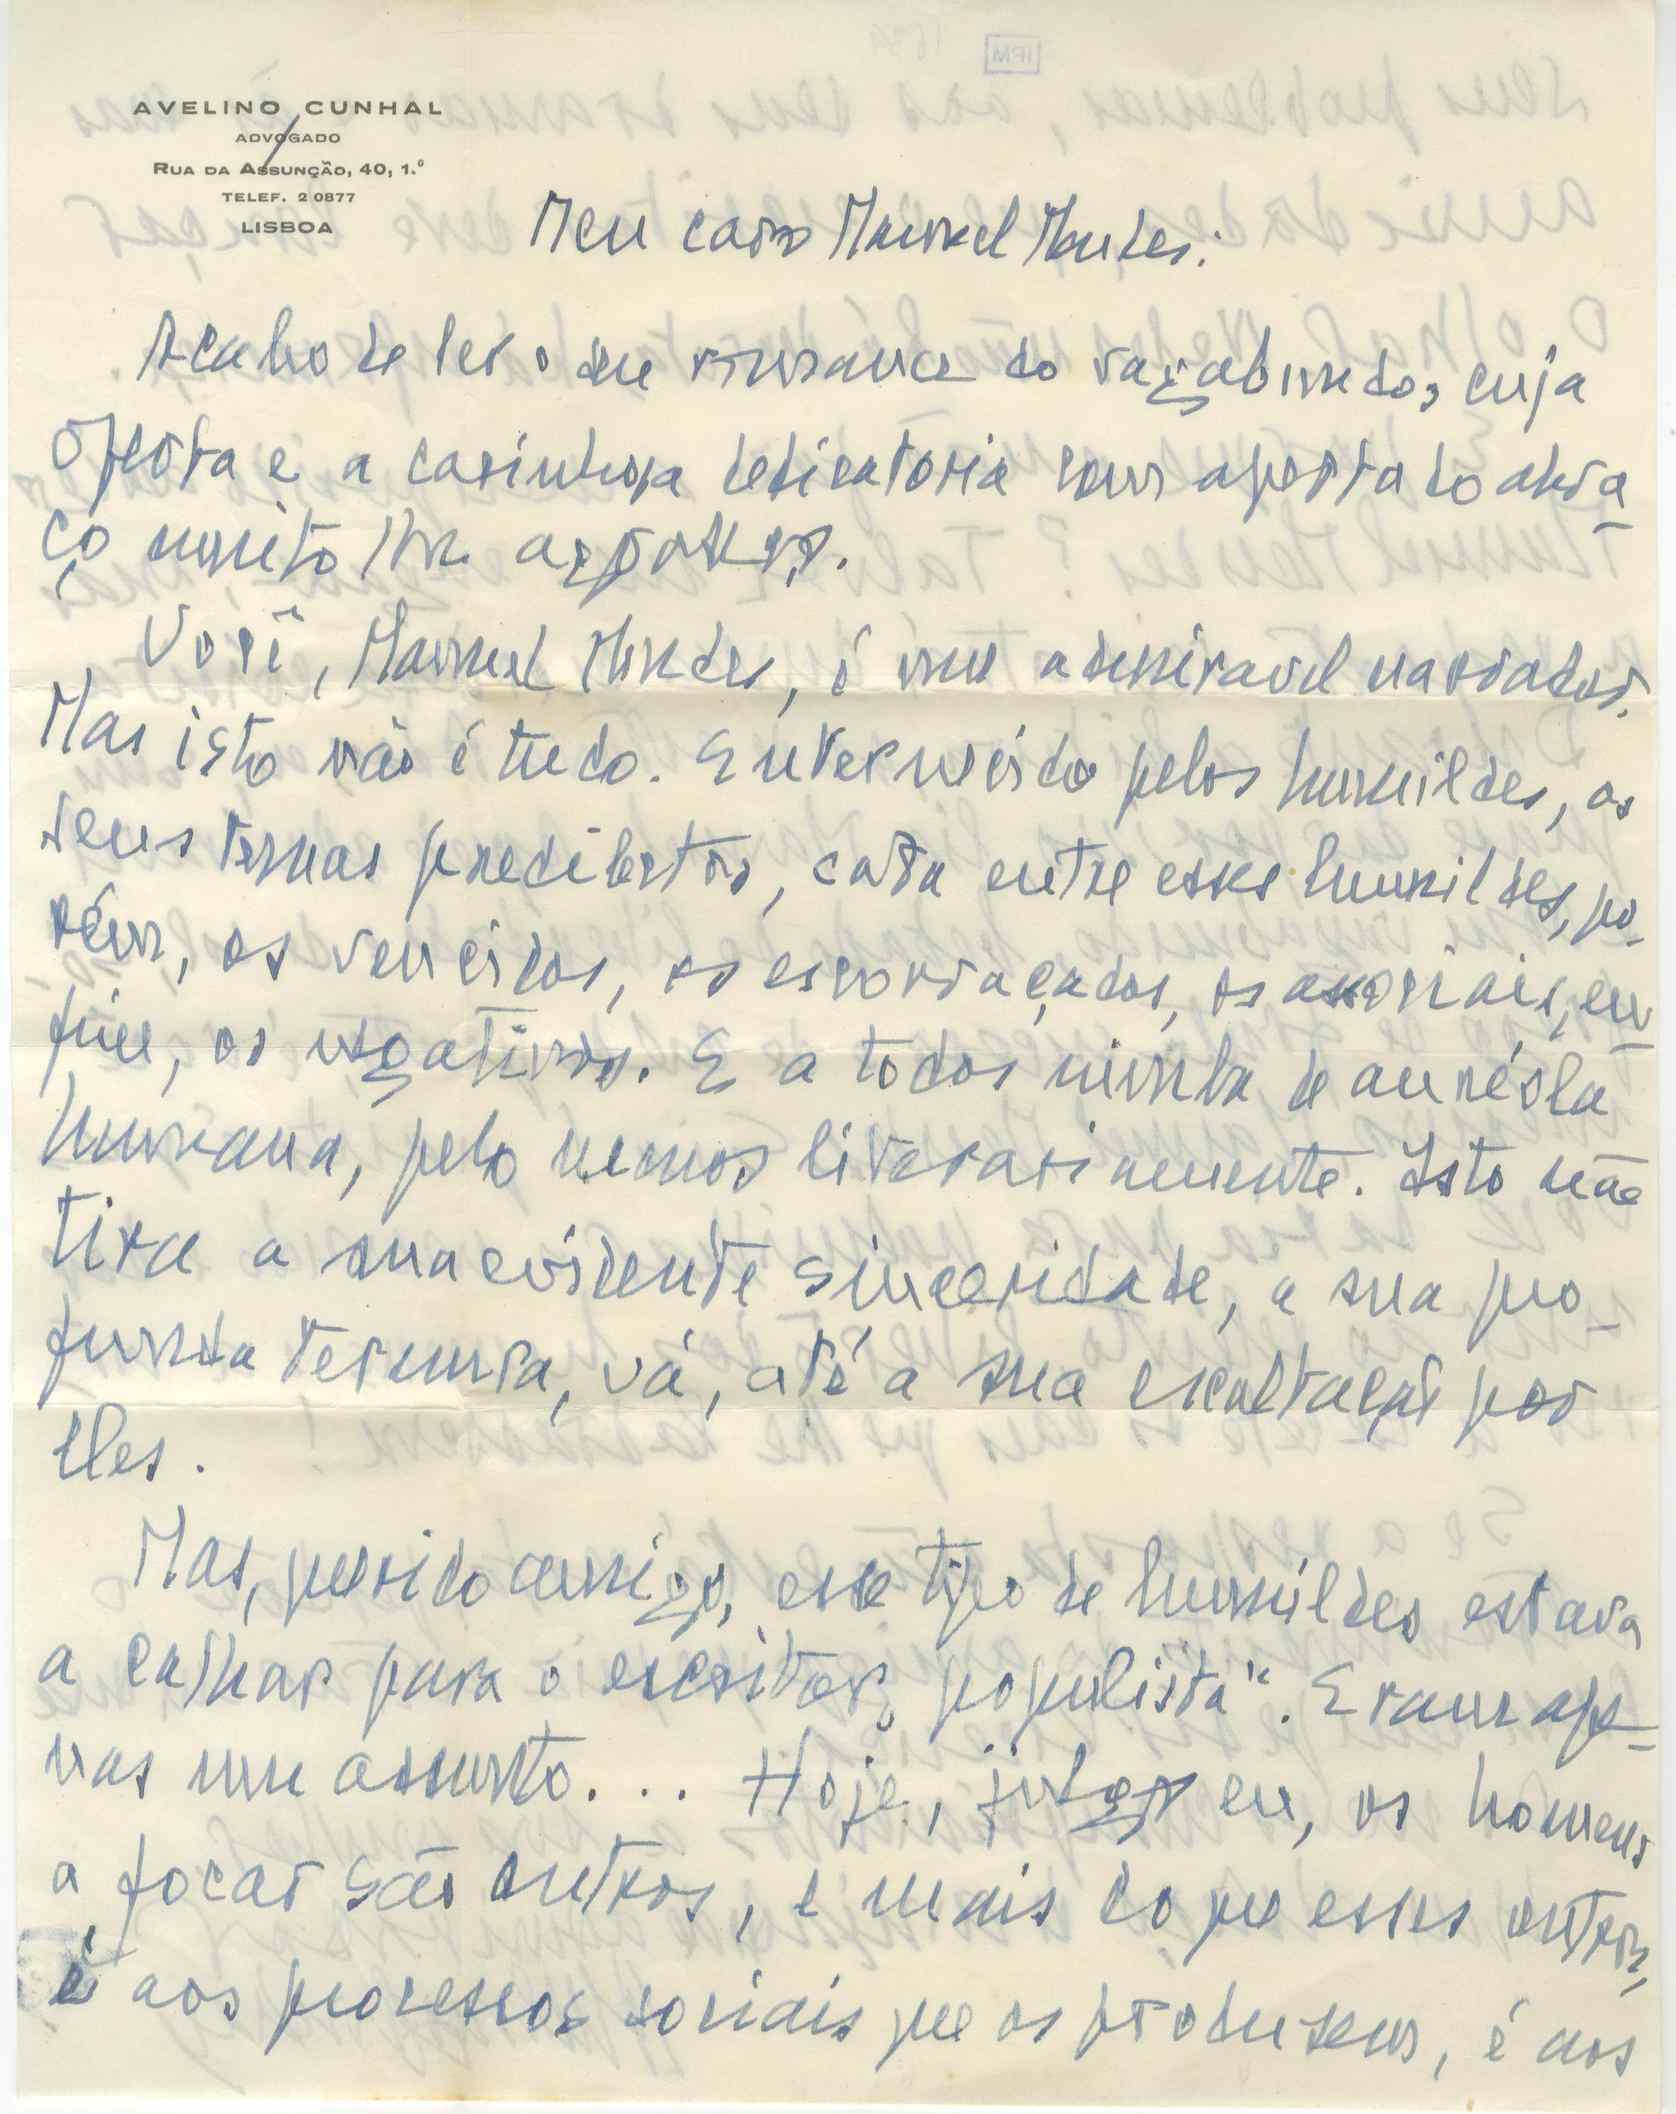 AVELINO CUNHAL
ADVOGADO
RUA DA ASSUNÇÃO, 40, 1.º
TELEF. 2 0877
LISBOA
Meu caro Manuel Mendes:
Acabo de ler o seu romance do vagabundo, cuja
oferta e a carinhosa dedicatoria com apertado abra-
ço muito lhe agradeço.
Você, Manuel Mendes, é um admiravel narrador.
Mas isto não é tudo. Enternecido pelos humildes, os
seus temas predilectos, cata entre esses humildes, po-
rém, os vencidos, os escorraçados, os associais, en-
fim, os negativos. E a todos nimba de auréola
humana, pelo menos literariamente. Isto não
tira a sua evidente sinceridade, a sua pro-
funda ternura, vá, até a sua exaltação por
eles.
Mas, querido amigo, esse tipo de humildes estava
a calhar para o escritor „populista". Eram ape-
nas um assunto... Hoje, julgo eu, os homens
a focar são outros, e mais do que esses outros,
é aos processos sociais que os produzem, é aos